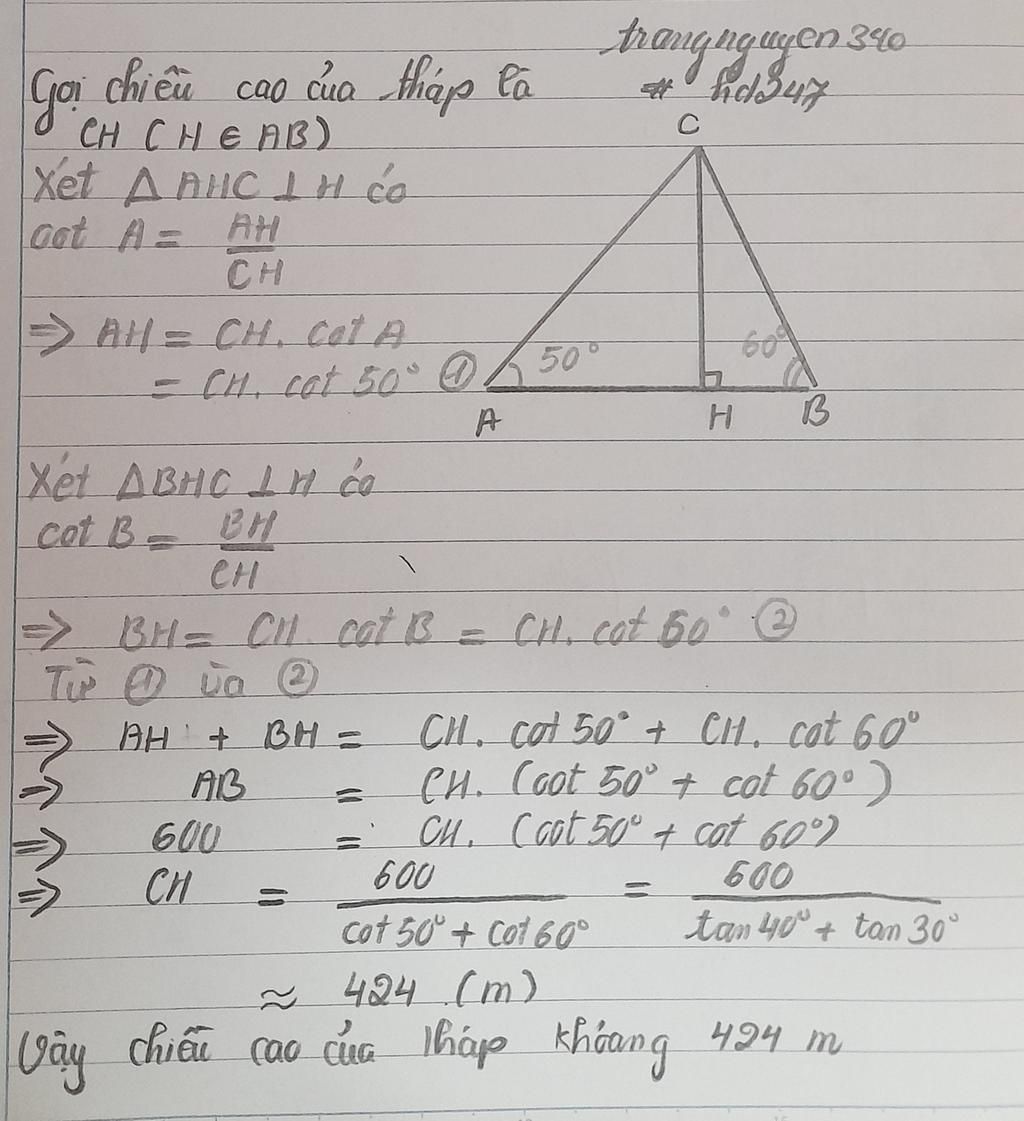 trangnguyen340
Gọi chiều cao của tháp là # hd347
CH (H ∈ AB)
Xét Δ AHC ⊥ H có
cot A = AH
CH
⇒ AH = CH. cot A
= CH. cot 50° ①
C
50°
60°
A
H
B
Xét ΔBHC ⊥ H có
cot B = BH
CH
⇒ BH = CH cot B = CH. cot 60° ②
Từ ① và ②
⇒ AH + BH = CH. cot 50° + CH. cot 60°
⇒ AB = CH. (cot 50° + cot 60°)
⇒ 600 = CH. (cot 50° + cot 60°)
⇒ CH = 600 = 600
cot 50° + cot 60° tan 40° + tan 30°
≈ 424 (m)
Vậy chiều cao của tháp khỏang 424 m